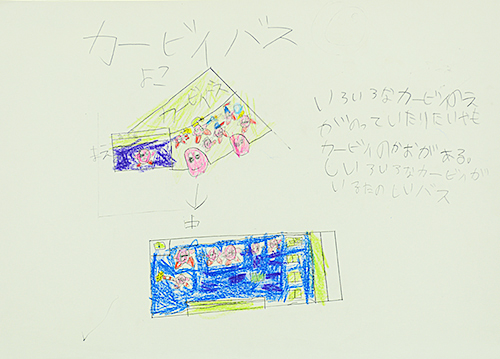 カービィバス
よこ
カービィバス
中
いろいろなカービィのえ
がのっていたりたいやも
カービィのかおがある。
しいろいろなカービィが
いるたのしいバス